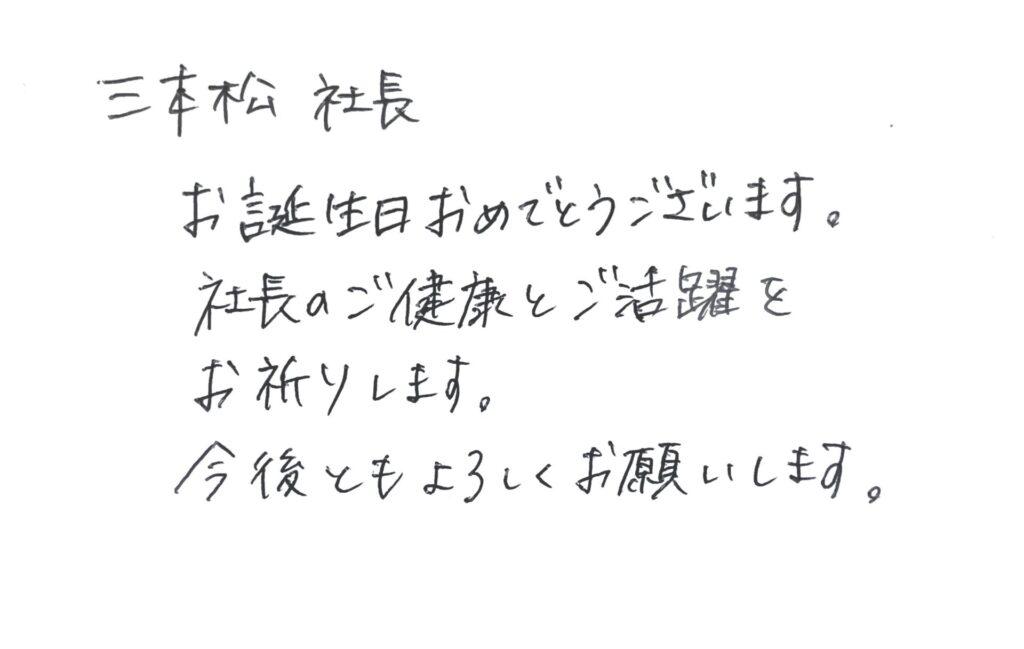 三本松 社長
お誕生日おめでとうございます。
社長のご健康とご活躍を
お祈りします。
今後ともよろしくお願いします。